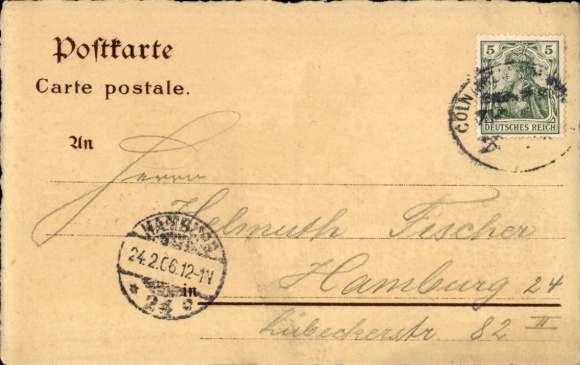 Postkarte
Carte postale.
5 5
DEUTSCHES REICH
CÖLN
An
Herrn
Helmuth Fischer
HAMBURG
24.2.06.12-1N
* 24 *
Hamburg 24
in
Lübeckerstr. 82 II